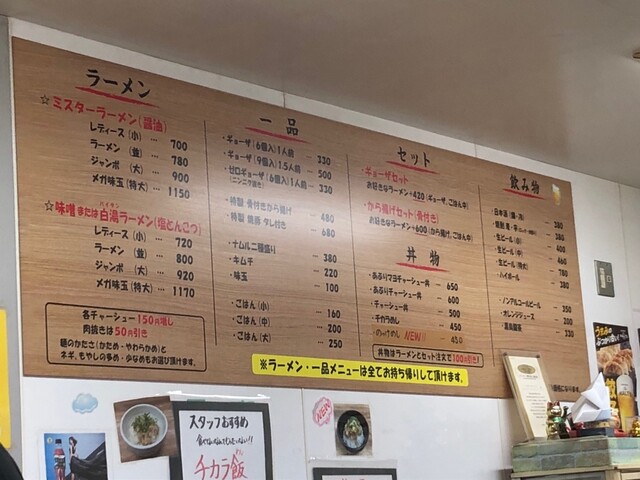 ラーメン
☆ミスターラーメン(醤油)
レディース(小) … 700
ラーメン(並) … 780
ジャンボ(大) … 900
メガ味玉(特大) … 1150
☆味噌または白湯ラーメン(塩とんこつ)
パイタン
レディース(小) … 720
ラーメン(並) … 800
ジャンボ(大) … 920
メガ味玉(特大) … 1170
各チャーシュー150円増し
肉抜きは50円引き
麺のかたさ(かため・やわらかめ)と
ネギ、もやしの多め・少なめもお選び頂けます。
一品
・ギョーザ(6個入)1人前 … 330
・ギョーザ(9個入)1.5人前 … 500
・ゼロギョーザ(6個入)1人前 … 330
(ニンニク抜き)
・特製 骨付きから揚げ … 480
・特製 豚 タレ付き … 680
・ナムル二種盛り … 380
・キムチ … 220
・味玉 … 100
・ごはん(小) … 160
・ごはん(中) … 200
・ごはん(大) … 250
セット
・ギョーザセット
お好きなラーメン+420(ギョーザ、ごはん中)
・から揚げセット(骨付き)
お好きなラーメン+600(から揚げ、ごはん中)
丼物
・あぶりマヨチャーシュー丼 … 650
・あぶりチャーシュー丼 … 600
・チャーシュー丼 … 500
・チカラめし … 450
のっけめし NEW!! 450
丼物はラーメンとセット注文で100円引き!
飲み物
・日本酒
・生ビール(小)
・生ビール(中)
・生ビール(特大) … 780
・ハイボール … 380
・ノンアルコールビール … 350
・オレンジジュース … 200
・黒烏龍茶 … 330
※ラーメン・一品メニューは全てお持ち帰りして頂けます。
スタッフおすすめ
チカラ飯
NEW